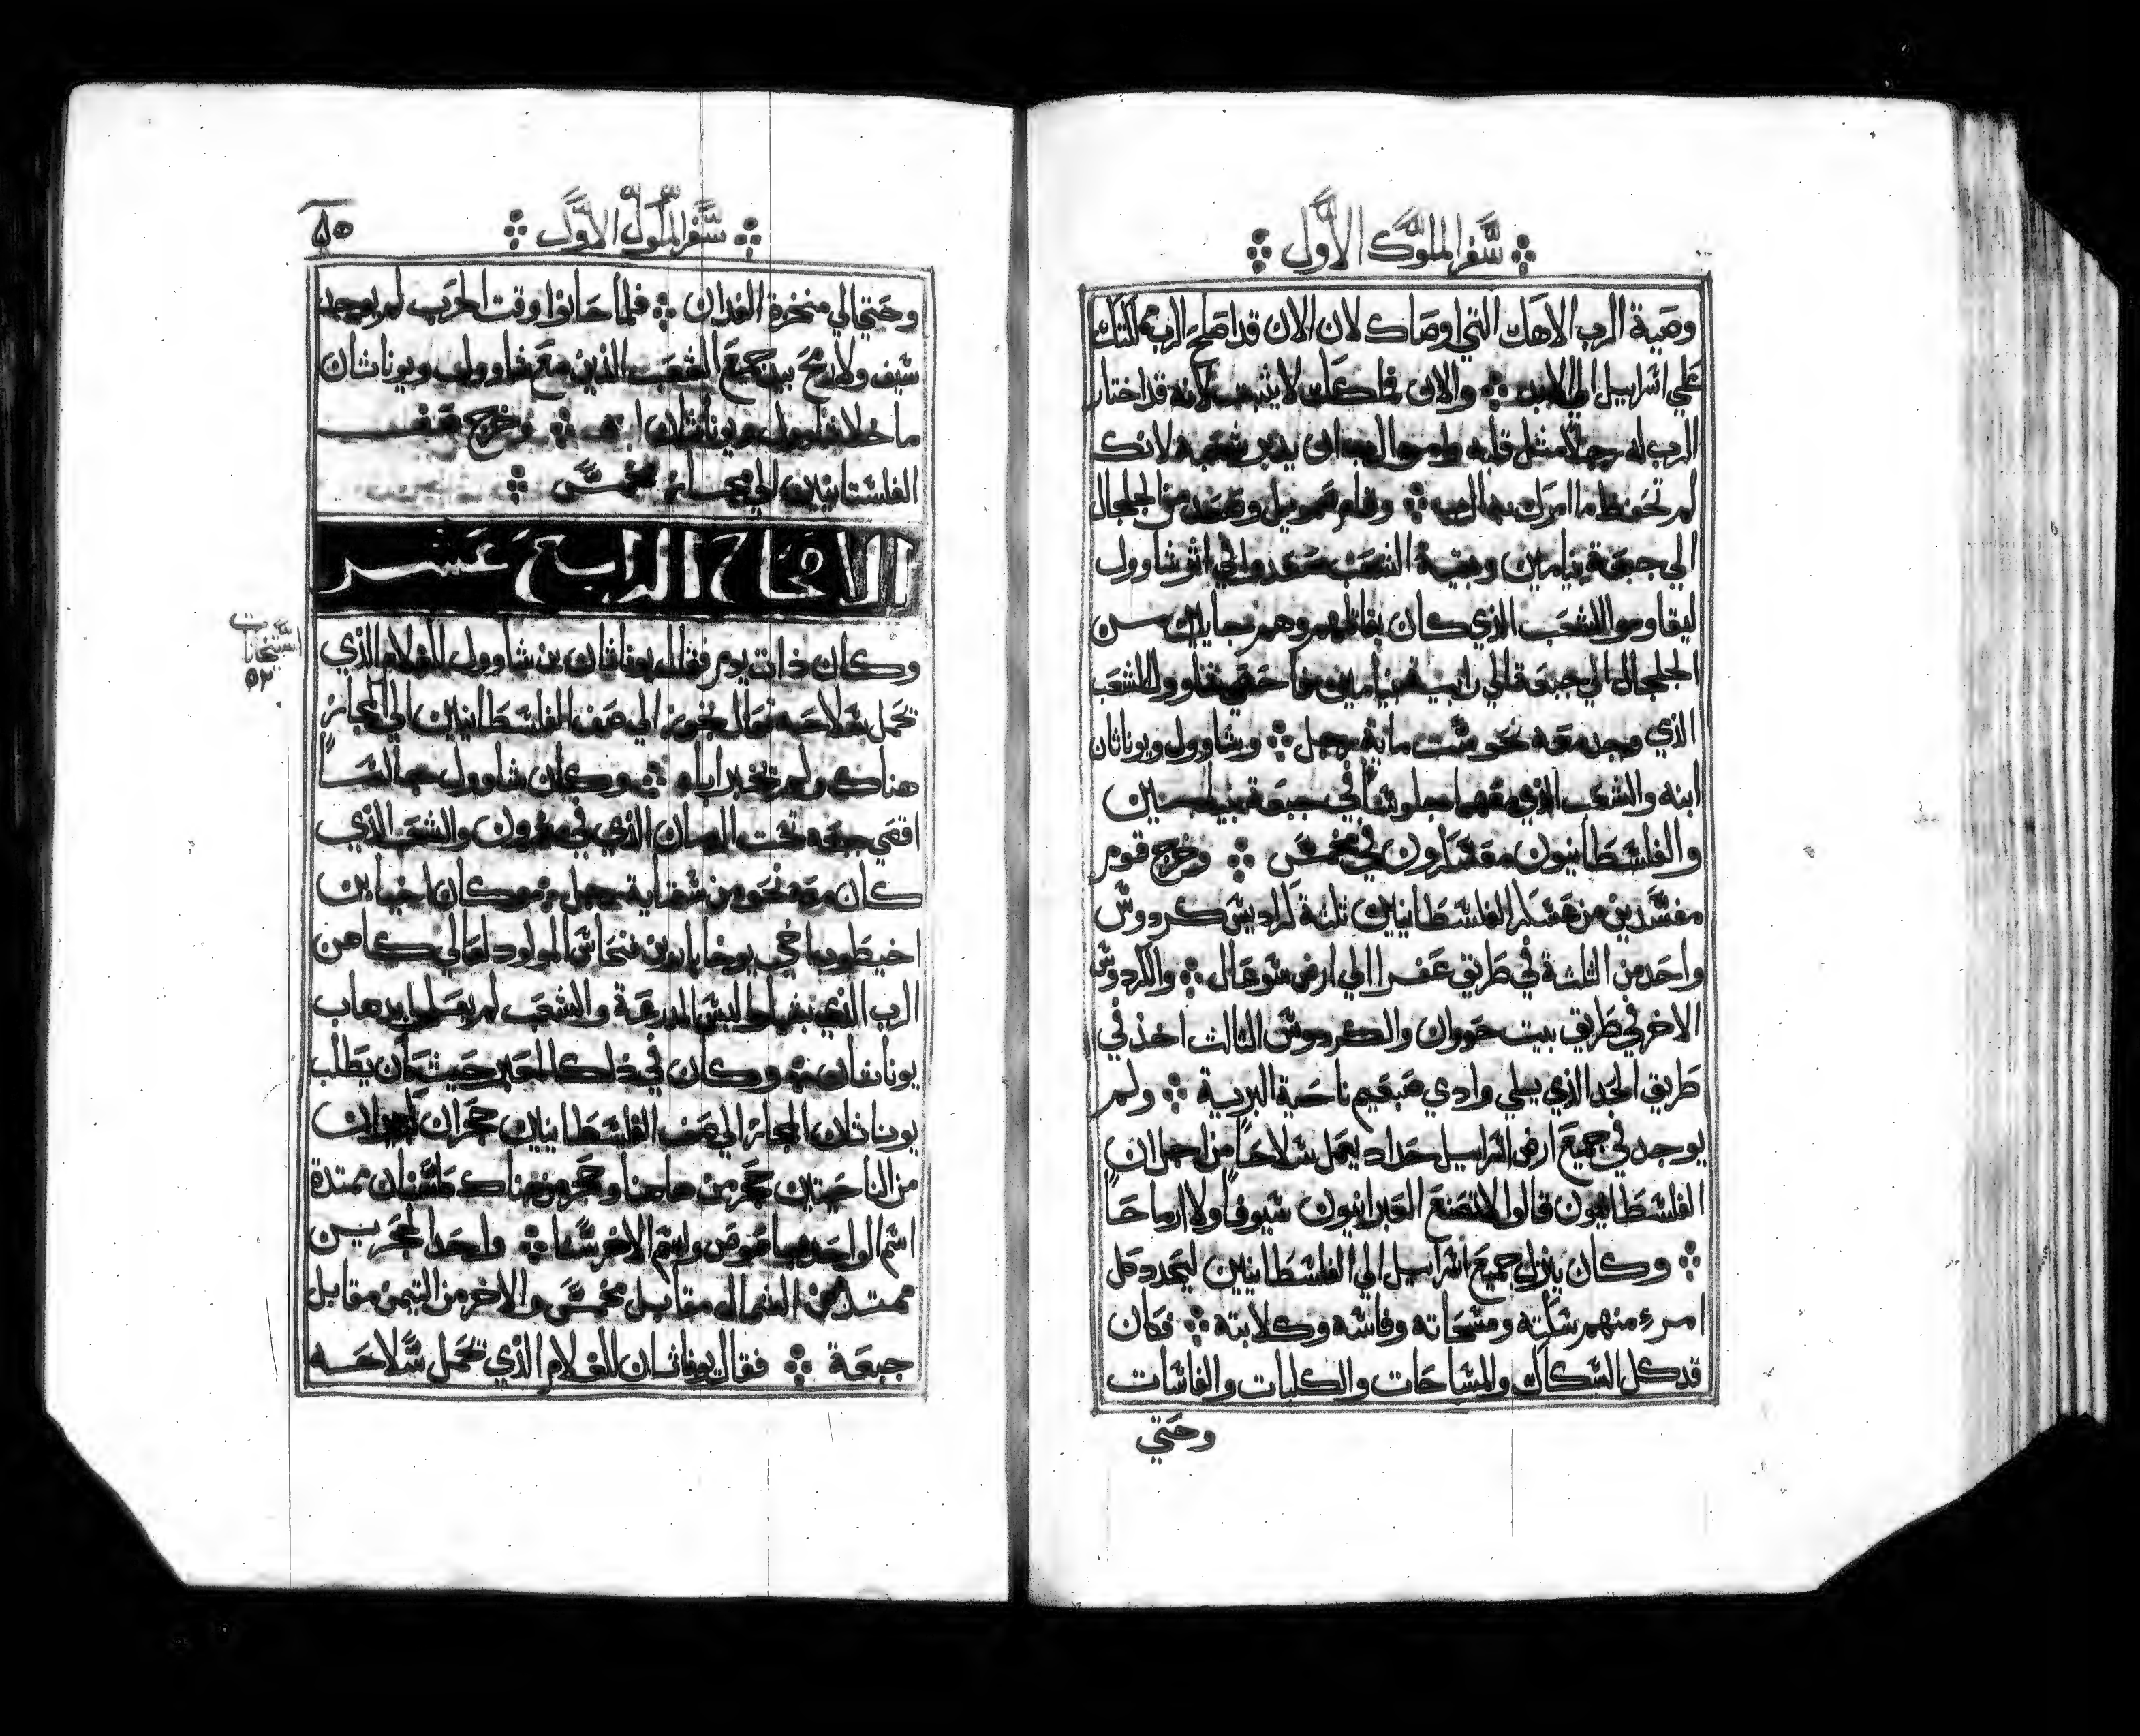 سفر الملوك الاول
وصية الرب الاهك التي اوصاك لان الان قد اصلح الرب ملكك
علي اسراييل الي الابد والان فملكك لا يثبت لانه قد اختار
الرب له رجلاً مثل قلبه وامره الرب ان يدبر شعبه لانك
لم تحفظ ما امرك به الرب وقام صمويل وصعد من الجلجال
الي جبعة بنيامين وبقية الشعب صعدوا الي اثر شاوول
ليقاوموا الشعب الذي كان يقاتلهم وهم جايين من
الجلجال الي جبعة في رابية بنيامين شاوول الشعب
الذي وجد معه نحو ست ماية رجل وشاوول ويوناثان
ابنه والشعب الذي معهما جلوساً في جبعة بنيامين
والفلسطانيون معسكرون في مخمس وخرج قوم
مفسدين من عسكر الفلسطانيين ثلثة كراديس كردوس
واحد من الثلثة في طريق عفرا الي ارض سوعال والكردوس
الاخر في طريق بيت حوران والكردوس الثالث اخذ في
طريق الحد الذي يلي وادي صبعيم ناحية البرية ولم
يوجد في جميع ارض اسراييل حداد يعمل سلاحاً من اجل ان
الفلسطانيون قالوا لا تصنع العبرانيون سيوفاً ولا ارماحاً
وكان ينزل جميع اسراييل الي الفلسطانيين ليحدد كل
امرء منهم سكته ومسحاته وفاسه وكلابته فكان
قد كل السكاك والمساحات والكلبات والفاسات
وحتي
سفر الملوك الاول
٨٥
وحتي الي منخزة الفدان فلما حانوا وقت الحرب لم يوجد
سيف ولا رمح بيد جميع الشعب الذين مع شاوول ويوناثان
ما خلا شاوول ويوناثان ابنه وخرج صف
الفلسطانيين الي مجاز مخمس
الاصحاح الرابع عشر
وكان ذات يوم فقال يوناثان بن شاوول للغلام الذي
تحمل سلاحه تعال نجوز الي صف الفلسطانيين الي مجاز
هناك ولم تخبر اباه وكان شاوول جالساً
اقصي جبعه تحت الرمان الذي في مغرون والشعب الذي
كان معه نحو من ستماية رجل وكان اخيا بن
اخيطوب اخي يوخاباد بن فنحاس المولود لعالي كاهن
الرب الذي بشيلو لابس المدرعة والشعب لم يعلموا بدهاب
يوناثان وكان في ذلك المعبر حيث كان يطلب
يوناثان المجاز الي صف الفلسطانيين حجران كبيران
من الناحيتين حجر من هاهنا وحجر من هناك ممتدة
اسم الواحد بوصوص واسم الاخر سنا واحد الحجرين
ممتد من الشمال مقابل مخمس والاخر من التيمن مقابل
جبعة فقال يوناثان للغلام الذي تحمل سلاحه